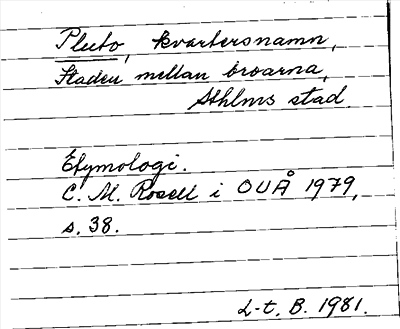 Pluto, kvartersnamn,
Staden mellan broarna,
Sthlms stad
Etymologi.
C. M. Rosell i OUÅ 1979,
s. 38.
L-t. B. 1981.